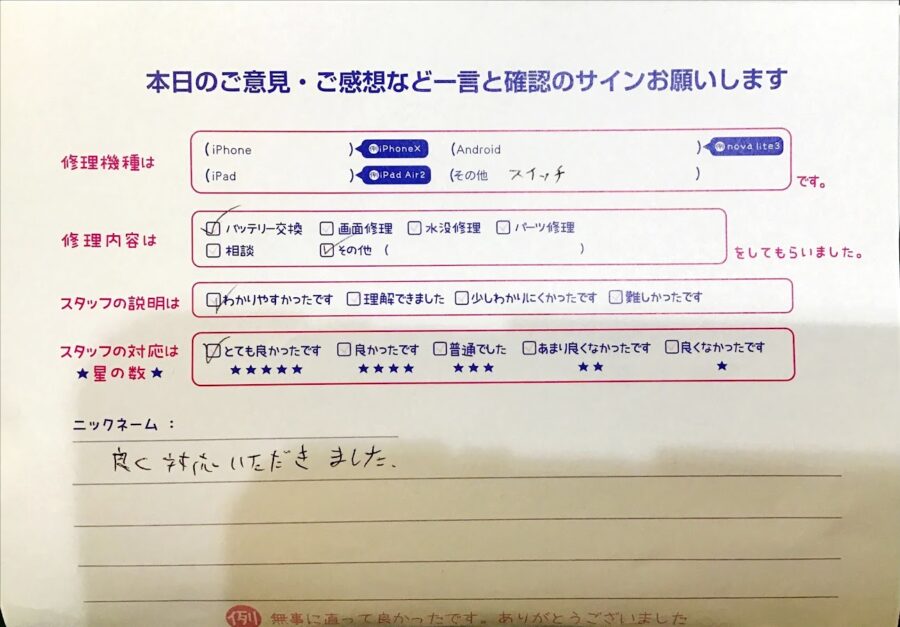 本日のご意見・ご感想など一言と確認のサインお願いします
修理機種は
(iPhone ) 例iPhoneX (Android ) 例nova lite3
(iPad ) 例iPad Air2 (その他 スイッチ )
です。
修理内容は
バッテリー交換 画面修理 水没修理 パーツ修理
相談 その他 ( )
をしてもらいました。
スタッフの説明は
わかりやすかったです 理解できました 少しわかりにくかったです 難しかったです
スタッフの対応は
★星の数★
とても良かったです 良かったです 普通でした あまり良くなかったです 良くなかったです
★★★★★ ★★★★ ★★★ ★★ ★
ニックネーム：
良く対応いただきました。
例 無事に直って良かったです。ありがとうございました